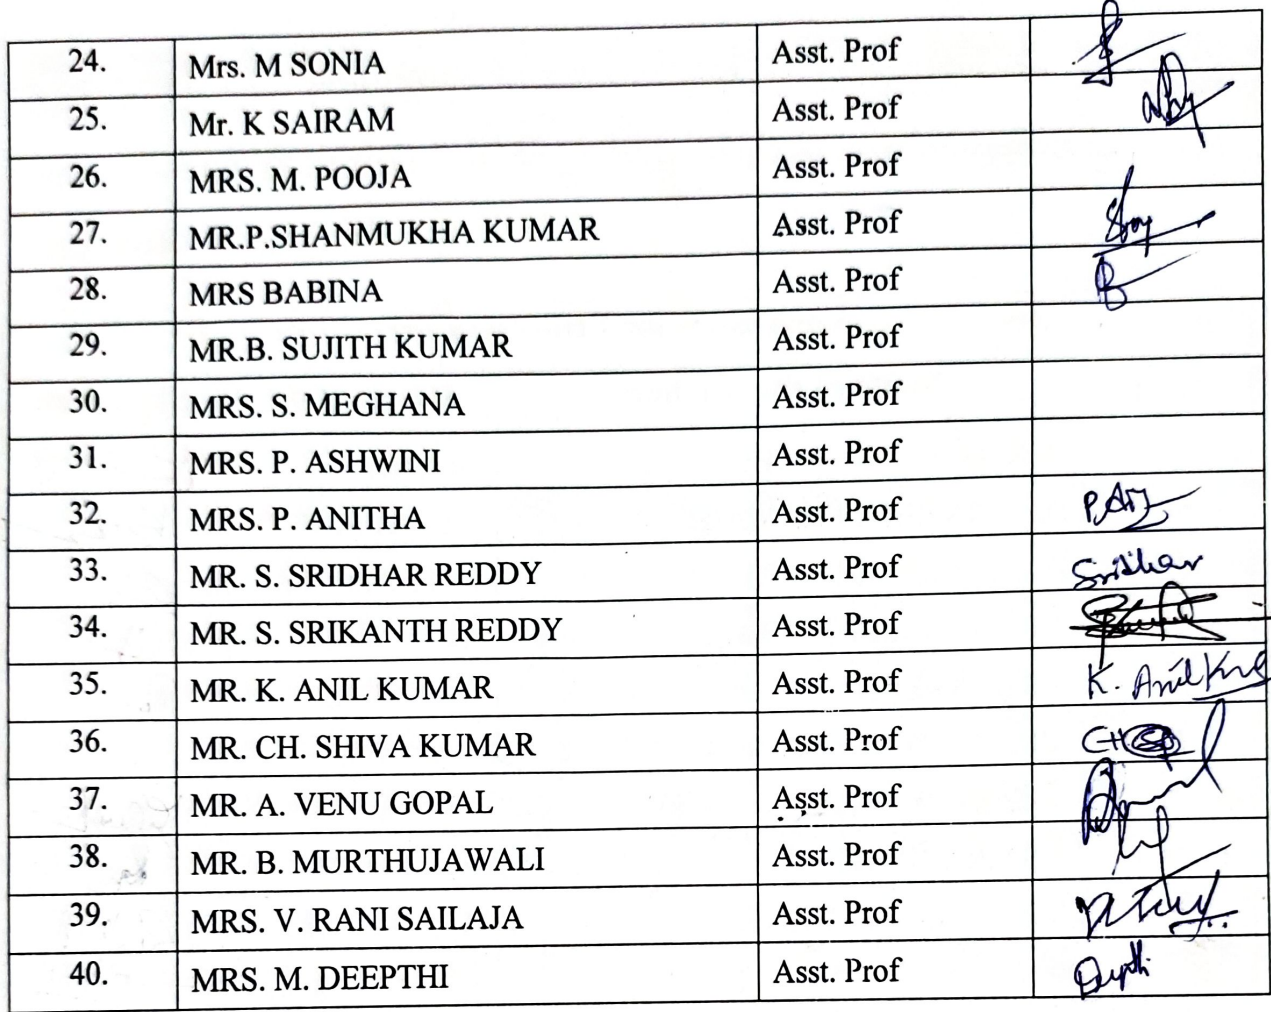 24. Mrs. M SONIA Asst. Prof
25. Mr. K SAIRAM Asst. Prof
26. MRS. M. POOJA Asst. Prof
27. MR.P.SHANMUKHA KUMAR Asst. Prof
28. MRS BABINA Asst. Prof B
29. MR.B. SUJITH KUMAR Asst. Prof
30. MRS. S. MEGHANA Asst. Prof
31. MRS. P. ASHWINI Asst. Prof
32. MRS. P. ANITHA Asst. Prof
33. MR. S. SRIDHAR REDDY Asst. Prof Sridhar
34. MR. S. SRIKANTH REDDY Asst. Prof
35. MR. K. ANIL KUMAR Asst. Prof K. Anil
36. MR. CH. SHIVA KUMAR Asst. Prof
37. MR. A. VENU GOPAL Asst. Prof
38. MR. B. MURTHUJAWALI Asst. Prof
39. MRS. V. RANI SAILAJA Asst. Prof
40. MRS. M. DEEPTHI Asst. Prof Deepthi